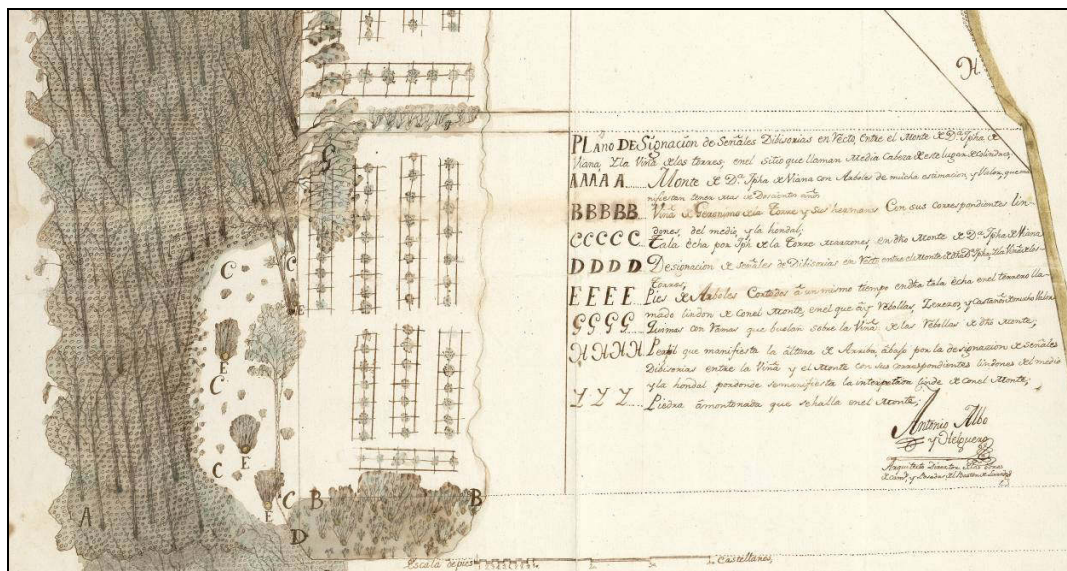 H
PLano DE Signacion de Señales Dibisorias en Vecto, entre el Monte de Dª Jpha de
Viana y la Viña de las torres, en el sitio que llaman Media Cabeza de este lugar de Colindres,
AAAA A Monte de Dª Jpha de Viana con Arboles de mucha estimacion, y Valor, que
nifiestan tener mas de Doscientos añ
BBBBB Viña de Geronimo de la Torre y sus hermanos Con sus correspondientes lin-
dones, del medio, y la hondal;
CCCCC tala echa por Jph de la Torre en dho Monte de Dª Jpha de Viana
DDDD Designacion de señales de Dibisorias en Vecto, entre el Monte de dha Dª Jpha, y la Viña de los
Torres;
EEEE Pies de Arboles Cortados à un mismo tiempo en dha tala echa en el terreno lla-
mado lindon de Con el Monte, en el que ay Rebollas, y Castaños de mucho Valor
GGGG Quimas con Ramas que buelan sobre la Viña de las Rebollas de dho Monte;
HHHH Perfil que manifiesta la altura de Arriba, abajo por la designacion de señales
Dibisorias entre la Viña y el Monte con sus correspondientes lindones del medio
y la hondal por donde se manifiesta la linde de Con el Monte;
Y Y Y Piedra amontonada que se halla en el Monte;
Antonio Albo
y Helguero
Arquitecto Director
G
C
C
E
E
C
E
C
E
C
B
B
A
D
Escala de pies
Castellanos,